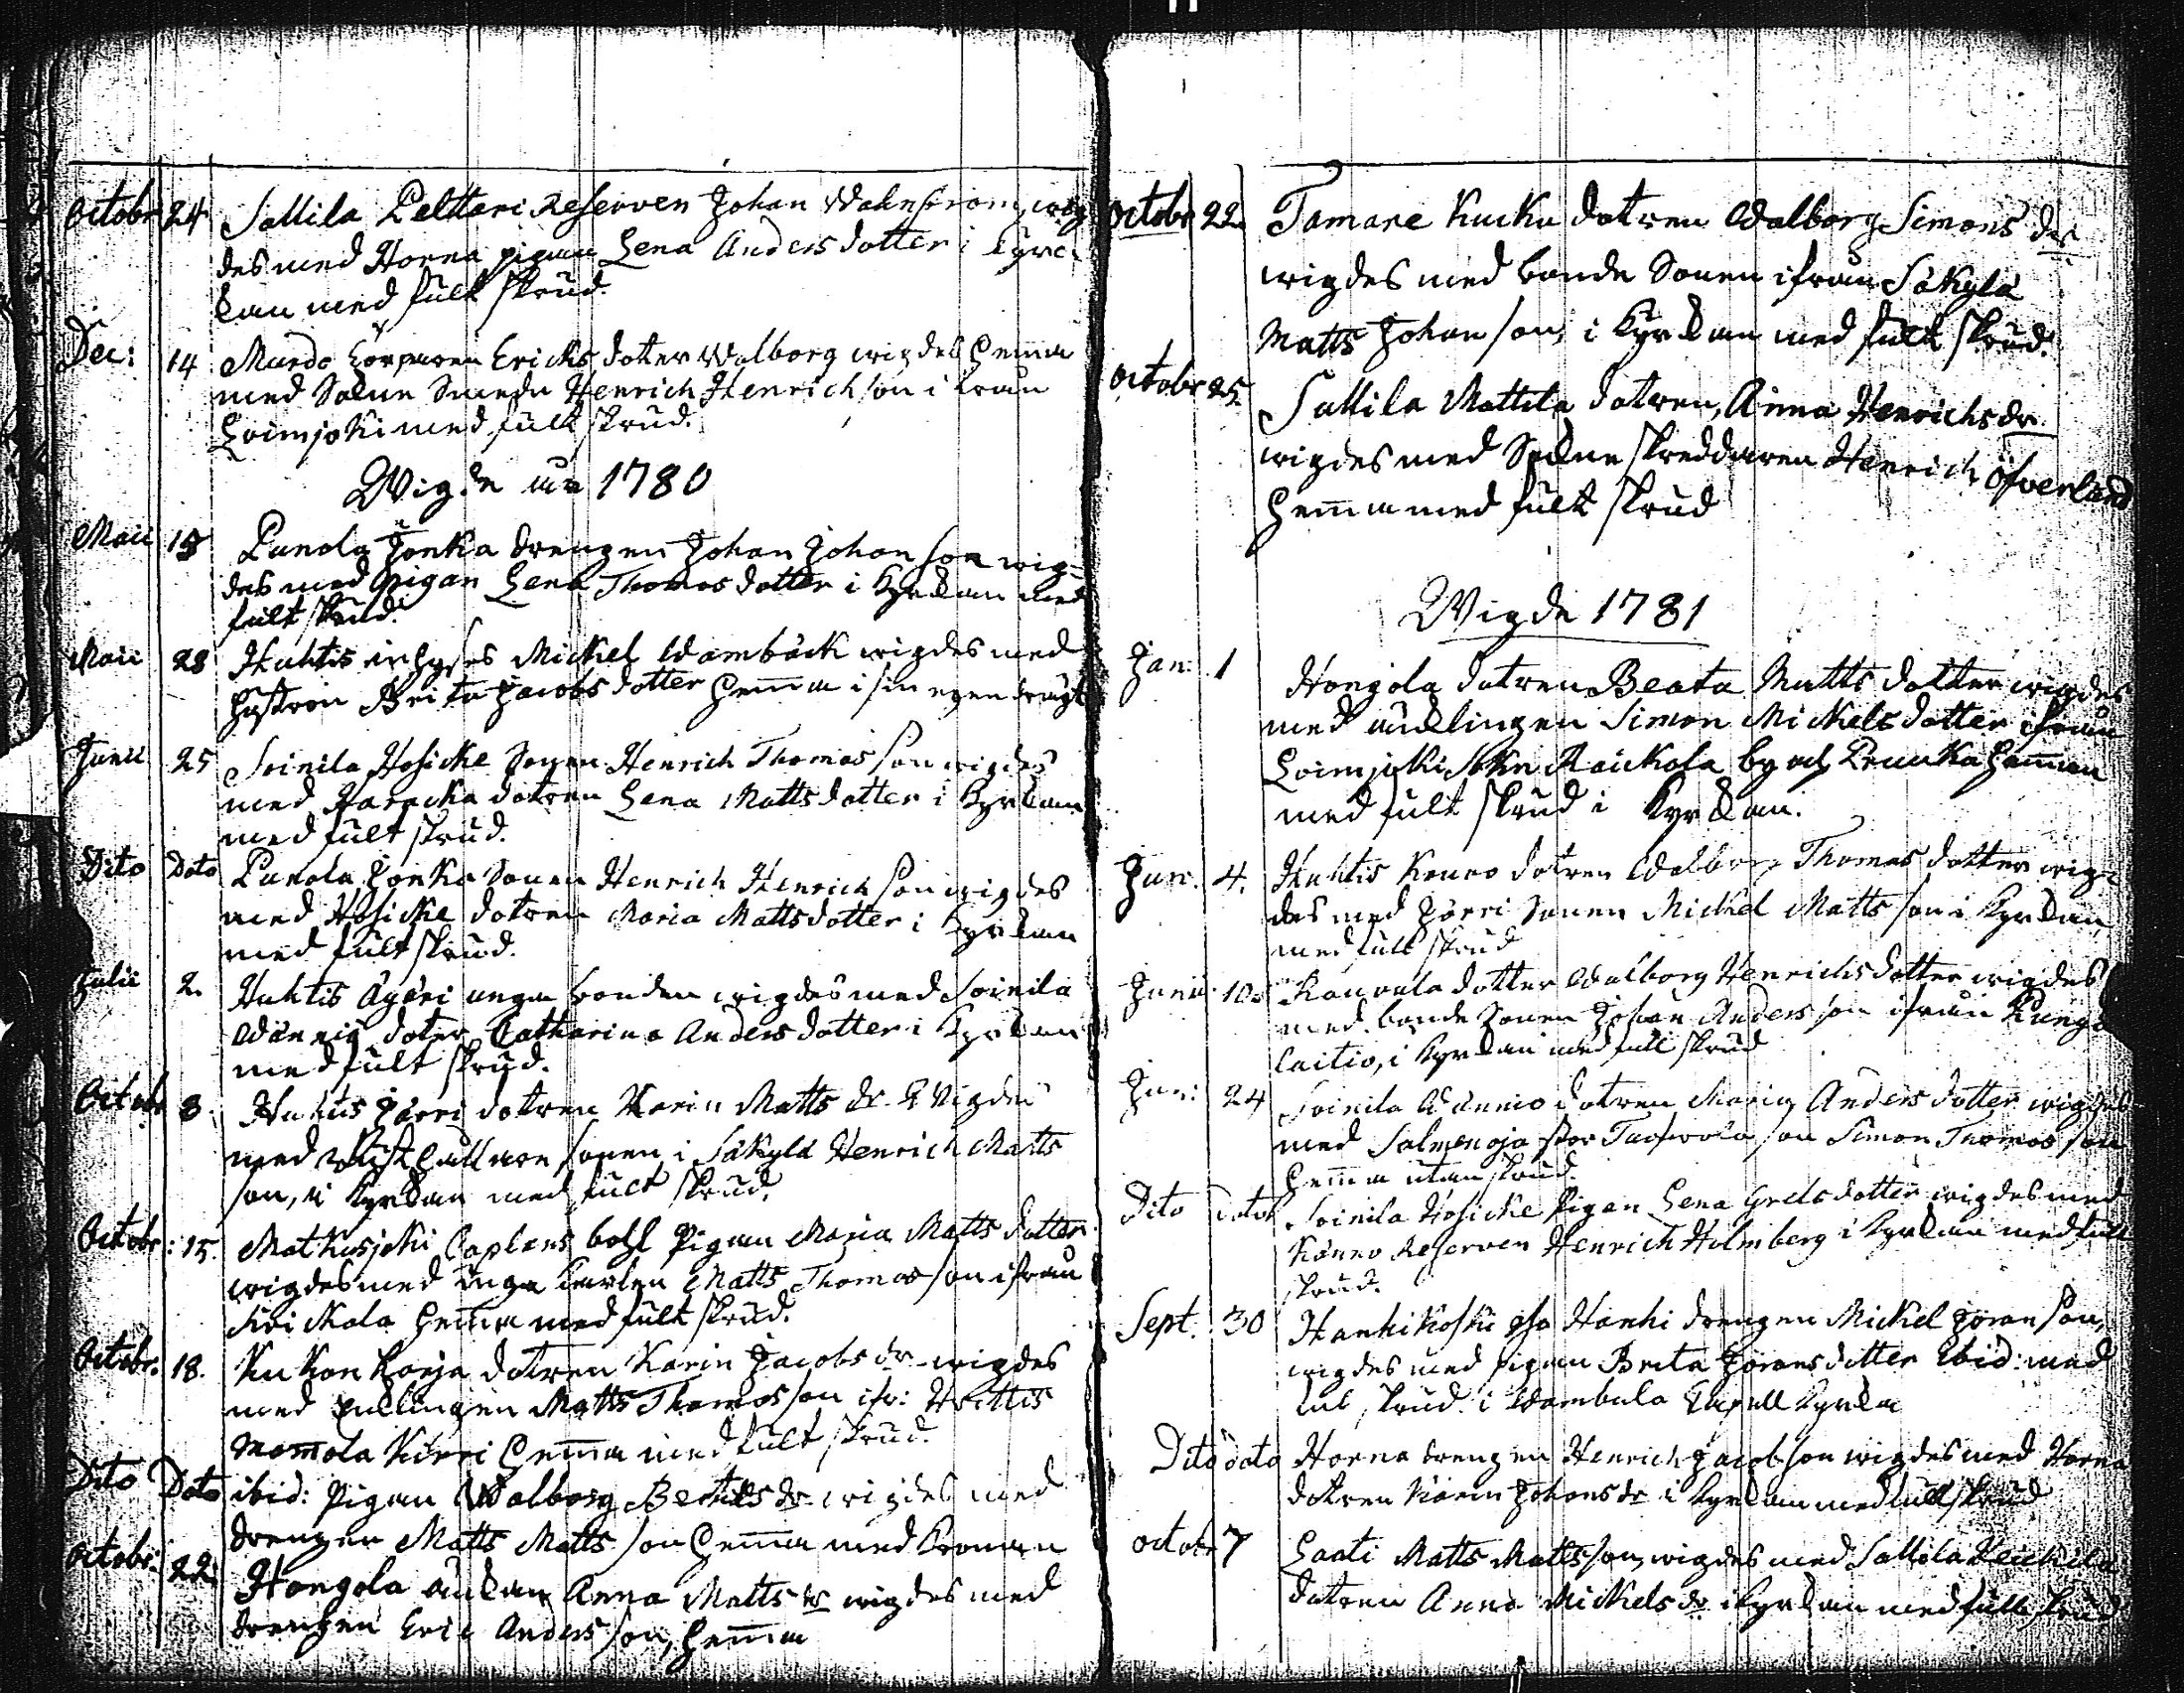 Octobr 24 Sallila Pelttari Reserven Johan Wahnström wig
des med Horna pigan Lena Anders dotter i Kyrc-
kan med fult skrud.
Dec: 14 Murdo Corparen Ericks doter Walborg wigdes hemma
med Sokne Smeden Henrich Henrichson i från
Loimjoki med fult skrud.
Wigde 1780
Maii 15 Punola Jonka drengen Johan Johan son wig=
des med Pigan Lena Thomas dotter i Kyrkan med
fult skrud.
Maii 28 Huhtis inhyses Mickel Wambäck wigdes med
hustrun Brita Jacobs dotter hemma i sin egen drägt
Junii 25 Soinila Hosicke Sonen Henrich Thomas son wigdes
med dotren Lena Matts dotter i Kyrkan
med fult skrud.
Dito Dato Punola Jonka Sonen Henrich Henrich son wigdes
med Hosicke dotren Maria Matts dotter i Kyrkan
med fult skrud.
Julii 2. Huhtis Äyäri unga bonden wigdes med Soinila
Wännio doter Catharina Anders dotter i Kyrkan
med fult skrud.
Octobr 8. Huhtis Jörri dotren Karin Matts dr wigdes
med sonen i Säkylä Henrich Matts
son, i Kyrkan med fult skrud.
Octobr: 15. Matkusjoki Caplens bohl Pigan Maria Matts dotter
wigdes med unga Karlen Matts Thomas son ifrån
hemma med fult skrud.
Octobr. 18. Kukon Korja dotren Karin Jacobs dr wigdes
med enklingen Matts Thomas son ifr: Wittis
Mommola Kierri hemma med fult skrud.
Dito Dato ibid: Pigan Walborg Bertils dr wigdes med
drengen Matts Matts son hemma med Kronan
Octobr: 22: Hongola änkan Anna Matts dr wigdes med
drengen Eric Anders son, hemma
Octobr 22. Tamare Kucku dotren Walborg Simons dr
wigdes med bonde Sonen ifrån Säkylä
Matts Johan son, i Kyrkan med fult skrud.
Octobr 25. Sallila Mattila dotren, Anna Henrichs dr
wigdes med Sokne skreddaren Henrich Öfverland
hemma med fult skrud
Wigde 1781
Jan: 1 Hongola dotren Beata Matts dotter wigdes
med änklingen Simon Mickels dotter ifrån
Loimjoki Sokn Raickola by och hemman
med fult skrud i Kyrkan.
Jan. 4. Huhtis Konno dotren Walborg Thomas dotter wig=
des med Jörri Sonen Mickel Matts son i Kyrkan,
med fult skrud
Junii 10. dotter Walborg Henrichs dotter wigdes
med bonde Sonen Johan Anders son ifrån Kunga
laitio, i Kyrkan med fult skrud
Jun: 24 Soinila Wännio dotren Maria Anders dotter wigdes
med Salmenoja son Simon Thomas son
hemma utan skrud.
Dito Dato Soinila Hosicke Pigan Lena Grels dotter wigdes med
Könno Reserven Henrich Holmberg i Kyrkan med fult
skrud.
Sept. 30 Hanhikoski Hanhi drengen Mickel Jöranson,
wigdes med pigan Brita Jörans dotter Ibid: med
full skrud i Wambula Capell Kyrka
Dito dato Horna drengen Henrich Jacobson wigdes med Horna
dotren Karin Johans dr i Kyrkan med full skrud
Octobr 7 Laati Matts Mattsson, wigdes med Sallila
dotren Anna Mickels dr i Kyrkan med fult skrud